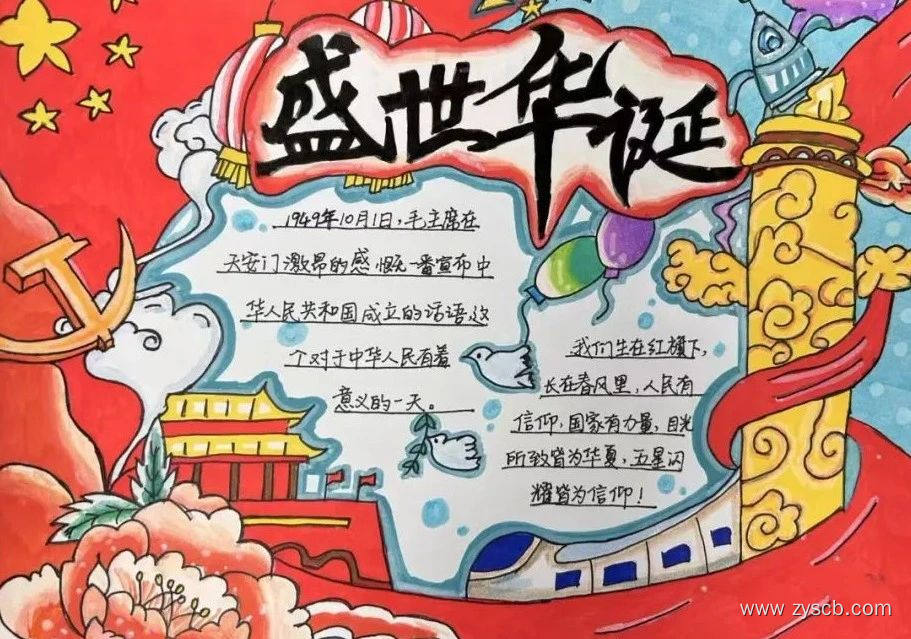 盛世华诞
1949年10月1日,毛主席在
天安门激昂的感慨一番宣布中
华人民共和国成立的话语这
个对于中华人民有着
意义的一天。
我们生在红旗下,
长在春风里,人民有
信仰,国家有力量,目光
所致皆为华夏,五星闪
耀皆为信仰!
www.zyscb.com